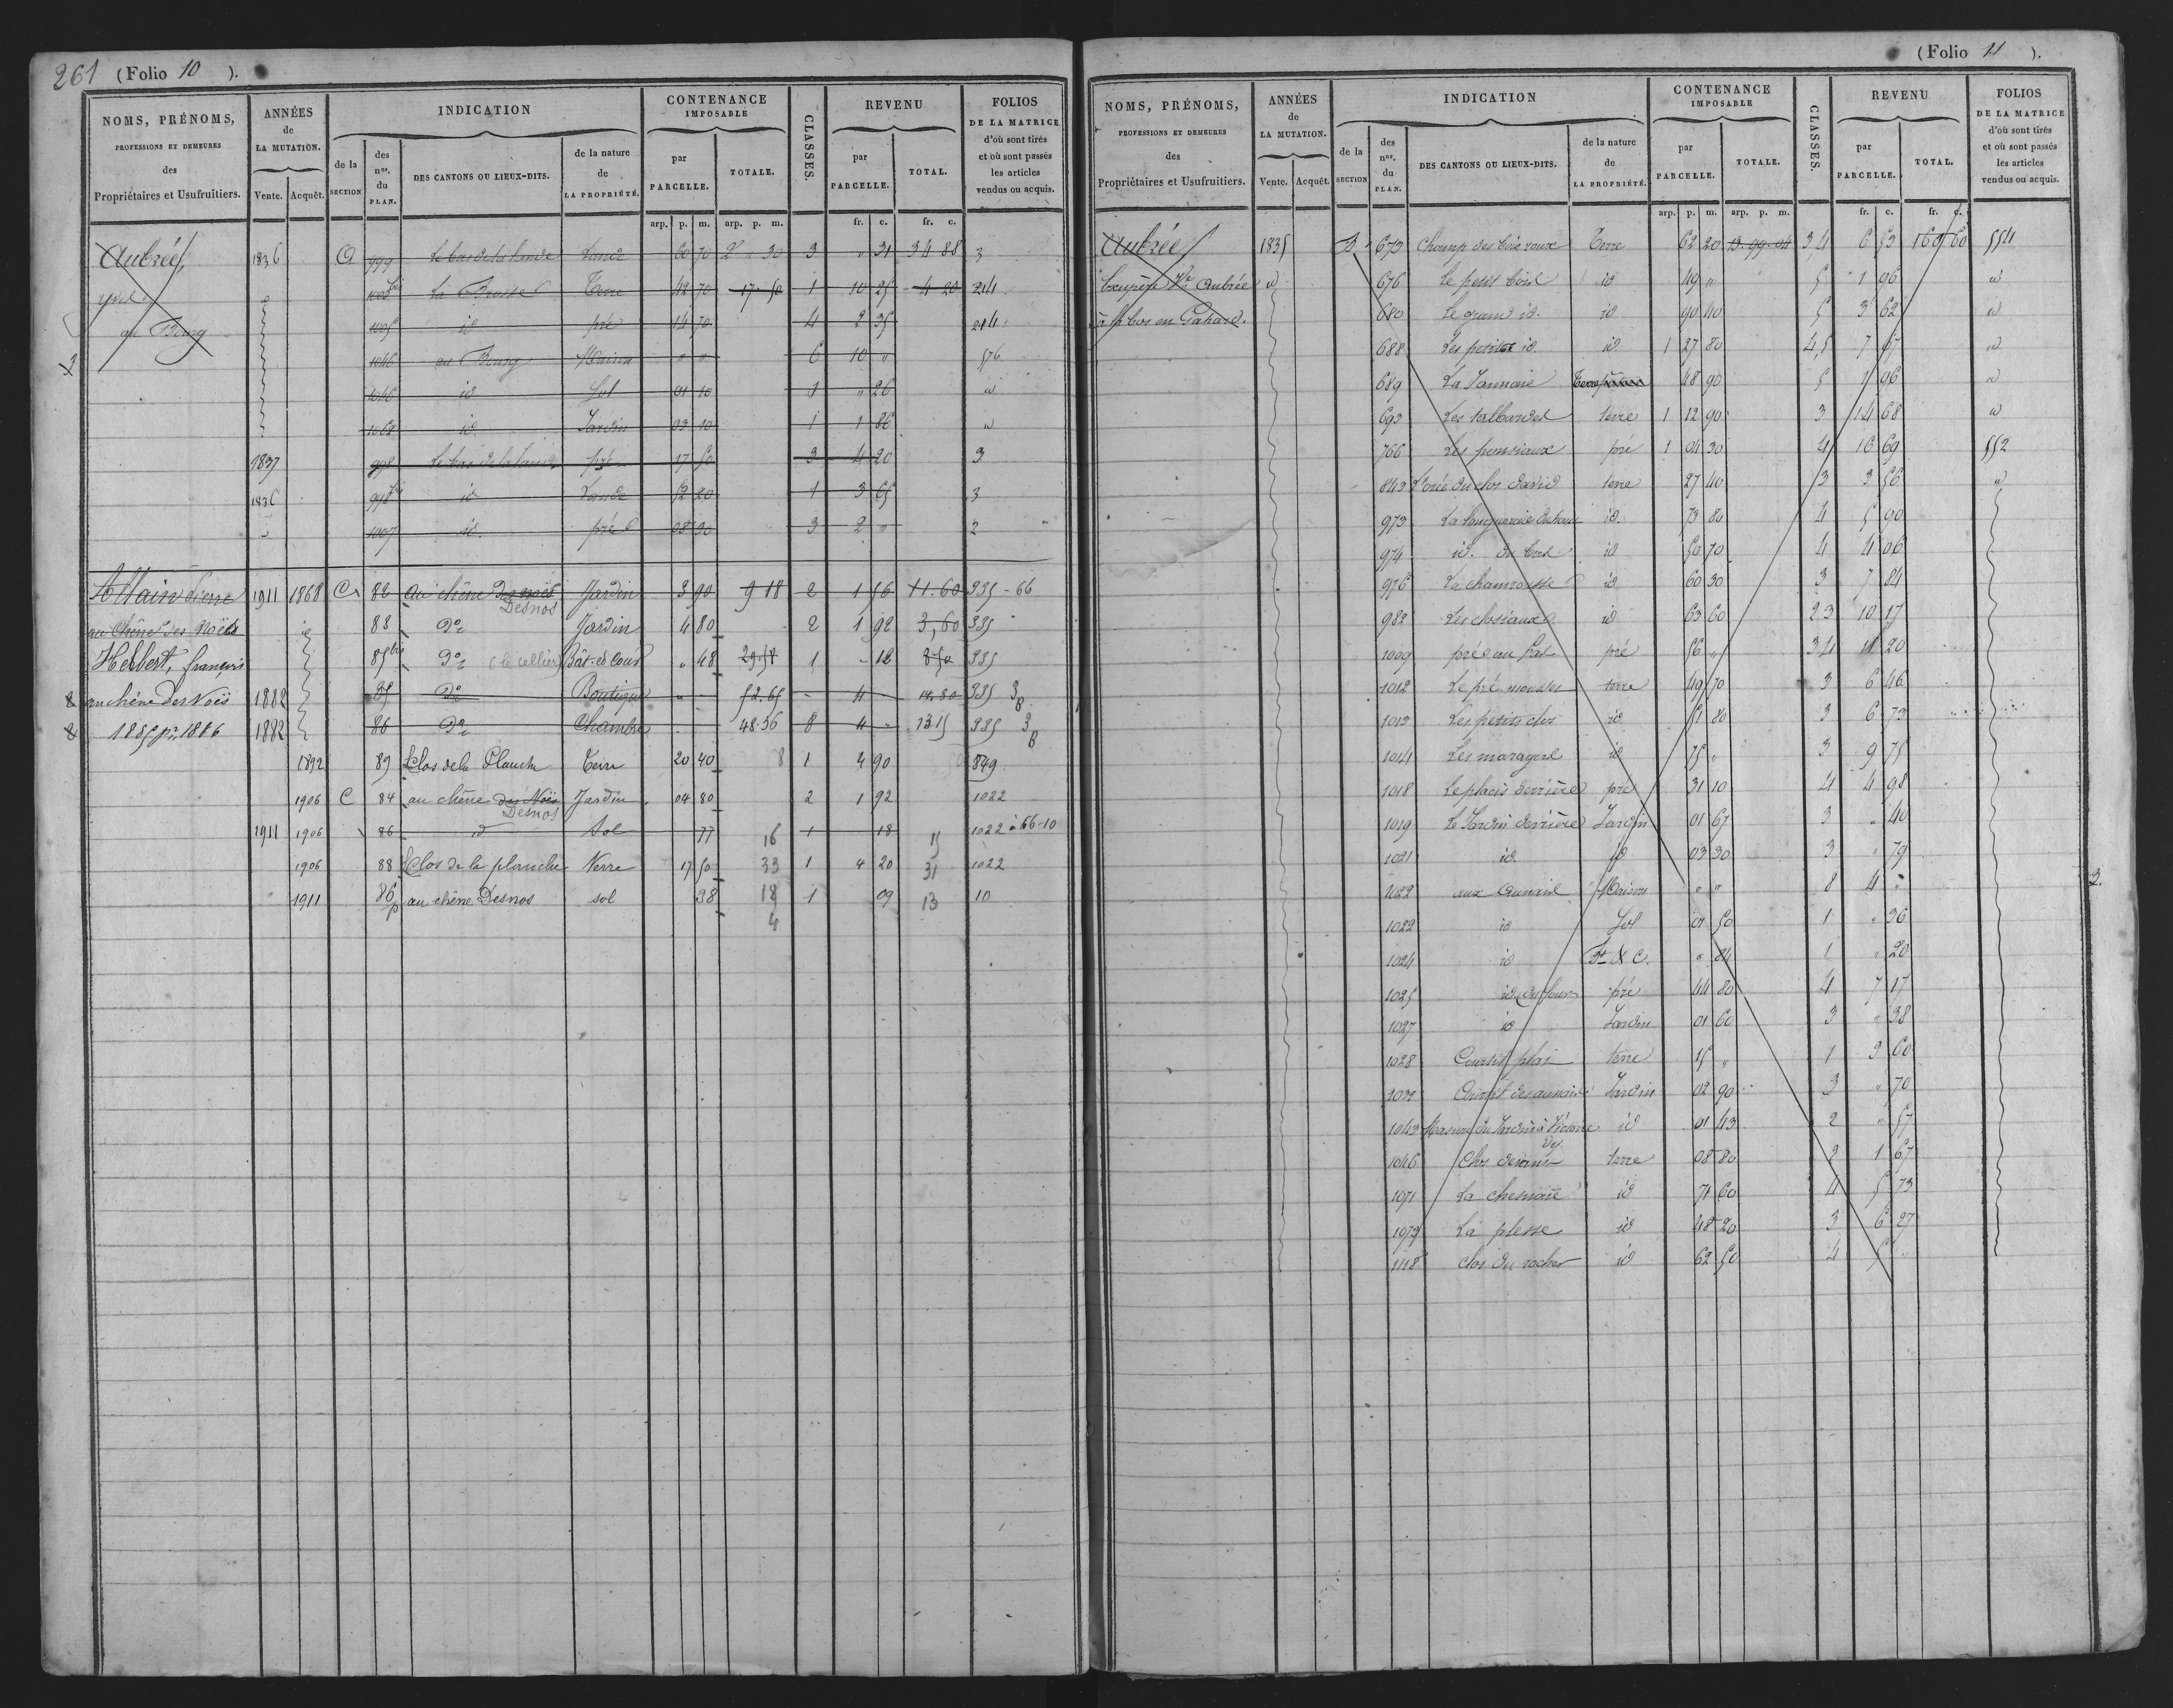 261 (Folio 10 ).
NOMS, PRÉNOMS, PROFESSIONS ET DEMEURES des Propriétaires et Usufruitiers.
ANNÉES de LA MUTATION. Vente. Acquêt.
INDICATION
de la SECTION
des nos. du PLAN.
DES CANTONS OU LIEUX-DITS.
de la nature de LA PROPRIÉTÉ.
CONTENANCE IMPOSABLE
par PARCELLE. TOTALE.
CLASSES.
REVENU
par PARCELLE. TOTAL.
FOLIOS DE LA MATRICE d'où sont tirés et où sont passés les articles vendus ou acquis.
arp. p. m. arp. p. m. fr. c. fr. c.
Aubrée, 1836 999 Le bas de la lande Lande 60 70 2 " 30 3 " 31 34 88 3
La Brosse Terre 42 70 17.50 1 10 25 4 20 214
au Bourg 1005 id pré 14 70 4 2 35 214
1046 au Bourg Maison " " 6 10 " 576
1046 id Sol 01 10 1 " 26 id
1062 id Jardin 03 10 1 1 86 id
1837 998 Le bas de la lande pré 17 50 3 4 20 3
1836 998 bis id Lande 52 20 1 3 65 3
1007 id. pré 08 30 3 2 " 2
Allain Pierre 1911 1868 C 82 au chêne des noës Desnos Jardin 3 90 9 18 2 1 56 11.60 335 - 66
au Chêne des Noëls 83 Do Jardin 4 80 2 1 92 3,60 335
Herbert, françois 85 bis Do (le cellier) Bât. et Cour " 48 29.58 1 - 12 8 50 335
au chêne des Noës 1882 85 Do Boutique " - 52.65 - 4 - 14.80 335 3B
1885 pr 1886 1882 86 Do Chambre - - 48.36 8 4 - 13 15 335 3B
1892 89 Clos de la Planche Terre 20 40 8 1 4 90 849
1906 C 84 au chêne des Noës Desnos Jardin 04 80 2 1 92 1022
1911 1906 86 id Sol 77 16 1 18 15 1022 à 66-10
1906 88 Clos de la planche Verre 17 50 33 1 4 20 31 1022
1911 86 p au chêne Desnos sol 38 18 1 09 13 10
4
(Folio 11 ).
NOMS, PRÉNOMS, PROFESSIONS ET DEMEURES des Propriétaires et Usufruitiers.
ANNÉES de LA MUTATION. Vente. Acquêt.
INDICATION
de la SECTION
des nos. du PLAN.
DES CANTONS OU LIEUX-DITS.
de la nature de LA PROPRIÉTÉ.
CONTENANCE IMPOSABLE
par PARCELLE. TOTALE.
CLASSES.
REVENU
par PARCELLE. TOTAL.
FOLIOS DE LA MATRICE d'où sont tirés et où sont passés les articles vendus ou acquis.
arp. p. m. arp. p. m. fr. c. fr. c.
Aubrée 1835 673 Champ des Terre 62 20 13.99.04 3,4 6 53 160 60 554
Exupère Aubrée id 676 Le petit id 49 " 5 1 96 id
en Gahard. 680 Le grand id. id 90 40 5 3 62 id
688 Les petits id id 1 27 80 4,5 7 67 id
689 La Jannaie Terre 48 90 5 1 96 id
693 Les tallardes terre 1 12 90 3 14 68 id
766 Les pensiaux pré 1 04 30 4 10 69 552
843 L'orée du clos david terre 27 40 3 3 56 id
973 La id. 73 80 4 5 90
974 id. du id 50 70 4 4 06
976 La chamrousse id 60 30 3 7 84
982 Les closiaux id 63 60 2 3 10 17
1009 pré au pré 56 " 3 4 11 20
1012 Le pré terre 49 70 3 6 46
1013 Les petits clos id 51 80 3 6 73
1014 Les id 75 " 3 9 75
1018 Le placis derrière pré 31 10 4 4 98
1019 Le Jardin derrière Jardin 01 67 3 " 40
1021 id. id 03 30 3 " 79
1022 aux Maison " " 8 4 "
1022 id Sol 01 50 1 " 36
1024 id Bt & C. " 84 1 " 20
1025 id pré 44 80 4 7 17
1027 id Jardin 01 60 3 " 38
1028 Courtil terre 15 " 1 3 60
Courtil Jardin 02 90 3 " 70
1043 Masure du Jardin à id 01 43 2 " 57
1046 Clos devant terre 08 80 2 1 67
1071 La chesnaie id 71 60 4 5 73
1079 La plesse id 48 20 3 6 27
1118 clos du rocher id 62 50 4 5 "